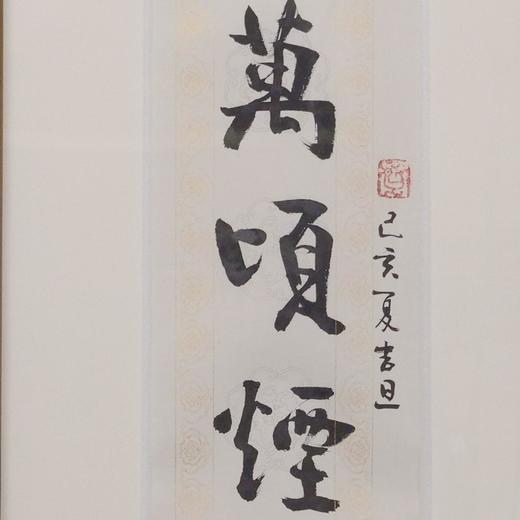 萬頃煙
己亥夏吉旦